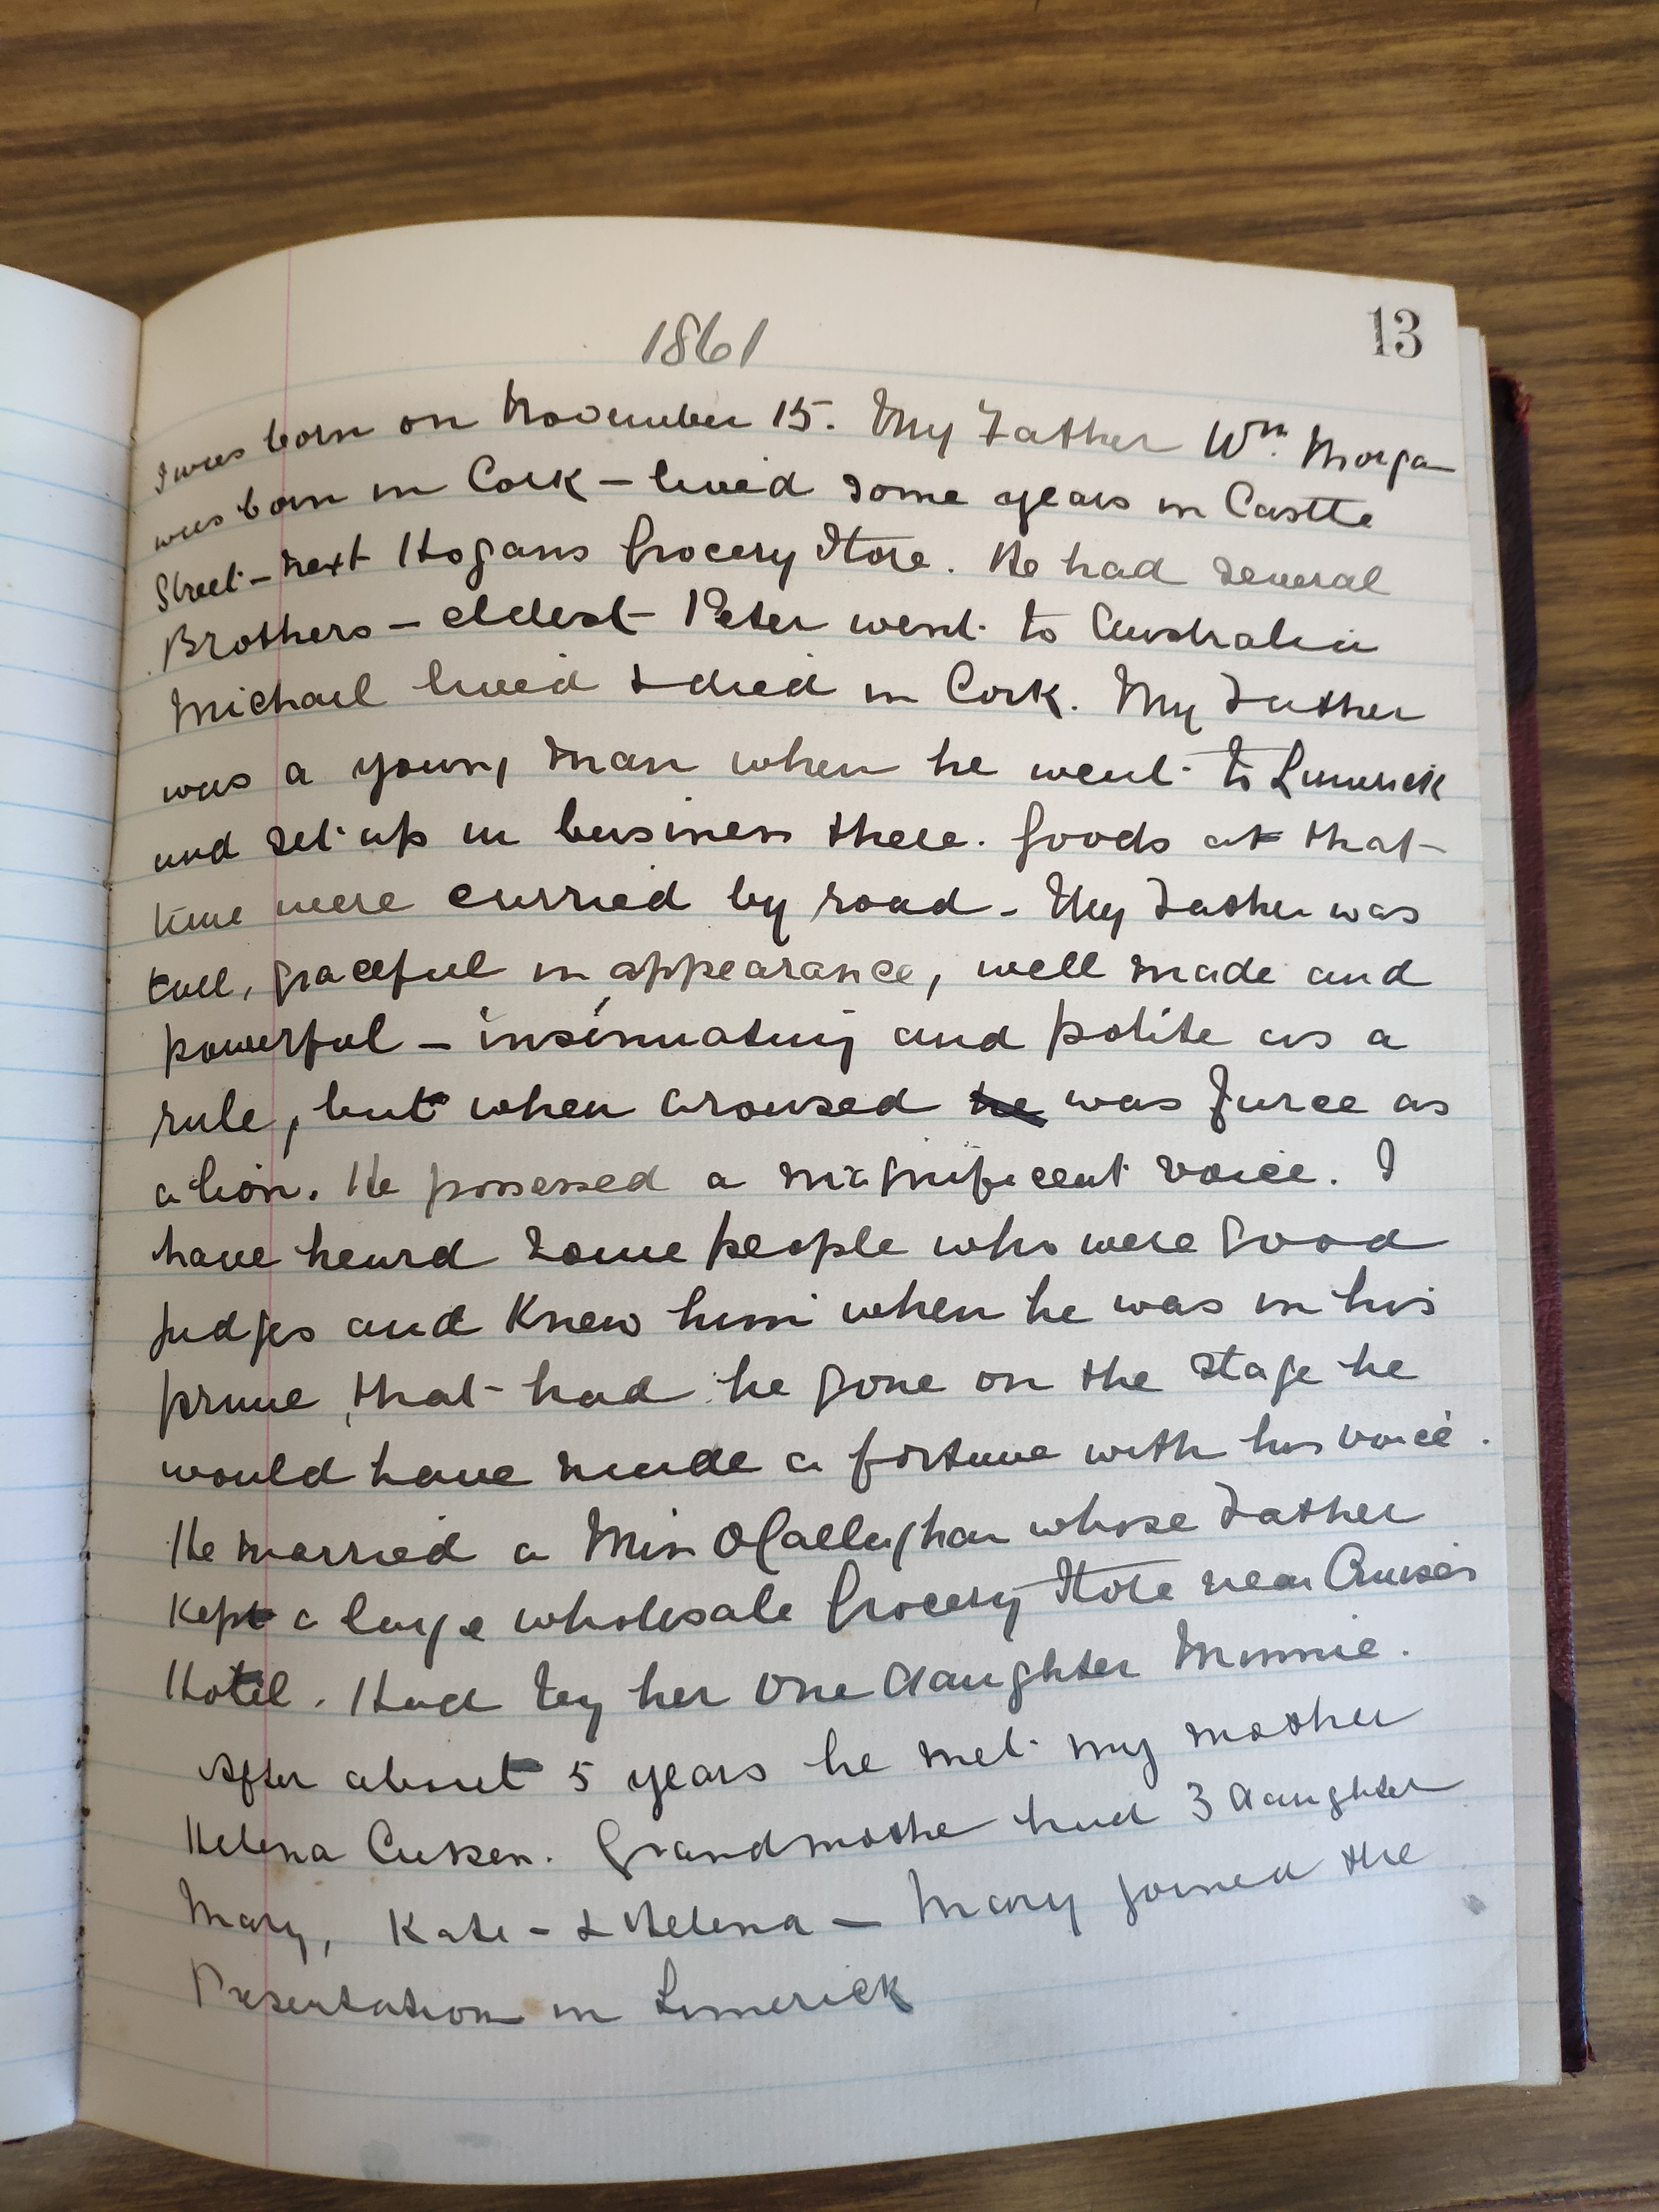 13
1861
I was born on November 15. My Father Wm. Morgan
was born in Cork – lived some years in Castle
Street – next Hogans Grocery Store. He had several
Brothers – eldest Peter went to Australia
Michael lived & died in Cork. My Father
was a young man when he went to Limerick
and set up in business there. Goods at that
time were carried by road – My Father was
tall, graceful in appearance, well made and
powerful – insinuating and polite as a
rule, but when aroused he was fierce as
a lion. He possessed a magnificent voice. I
have heard some people who were good
judges and knew him when he was in his
prime, that had he gone on the stage he
would have made a fortune with his voice.
He married a Miss O'Callaghan whose Father
kept a large wholesale Grocery Store near Cruises
Hotel. Had by her one daughter Minnie.
After about 5 years he met my mother
Helena Cussen. Grandmother had 3 daughter
Mary, Kate – & Helena – Mary joined the
Presentation in Limerick